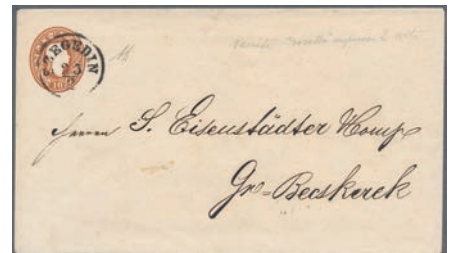 SZEGEDIN
23
10
Herrn S. Eisenstädter & Comp
Gr=Becskerek